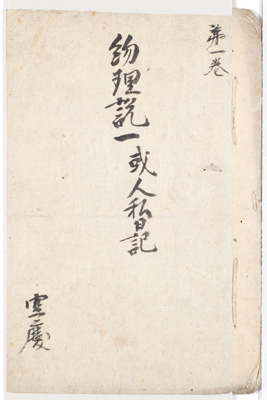 第一巻
約理説一或人私日記
慶